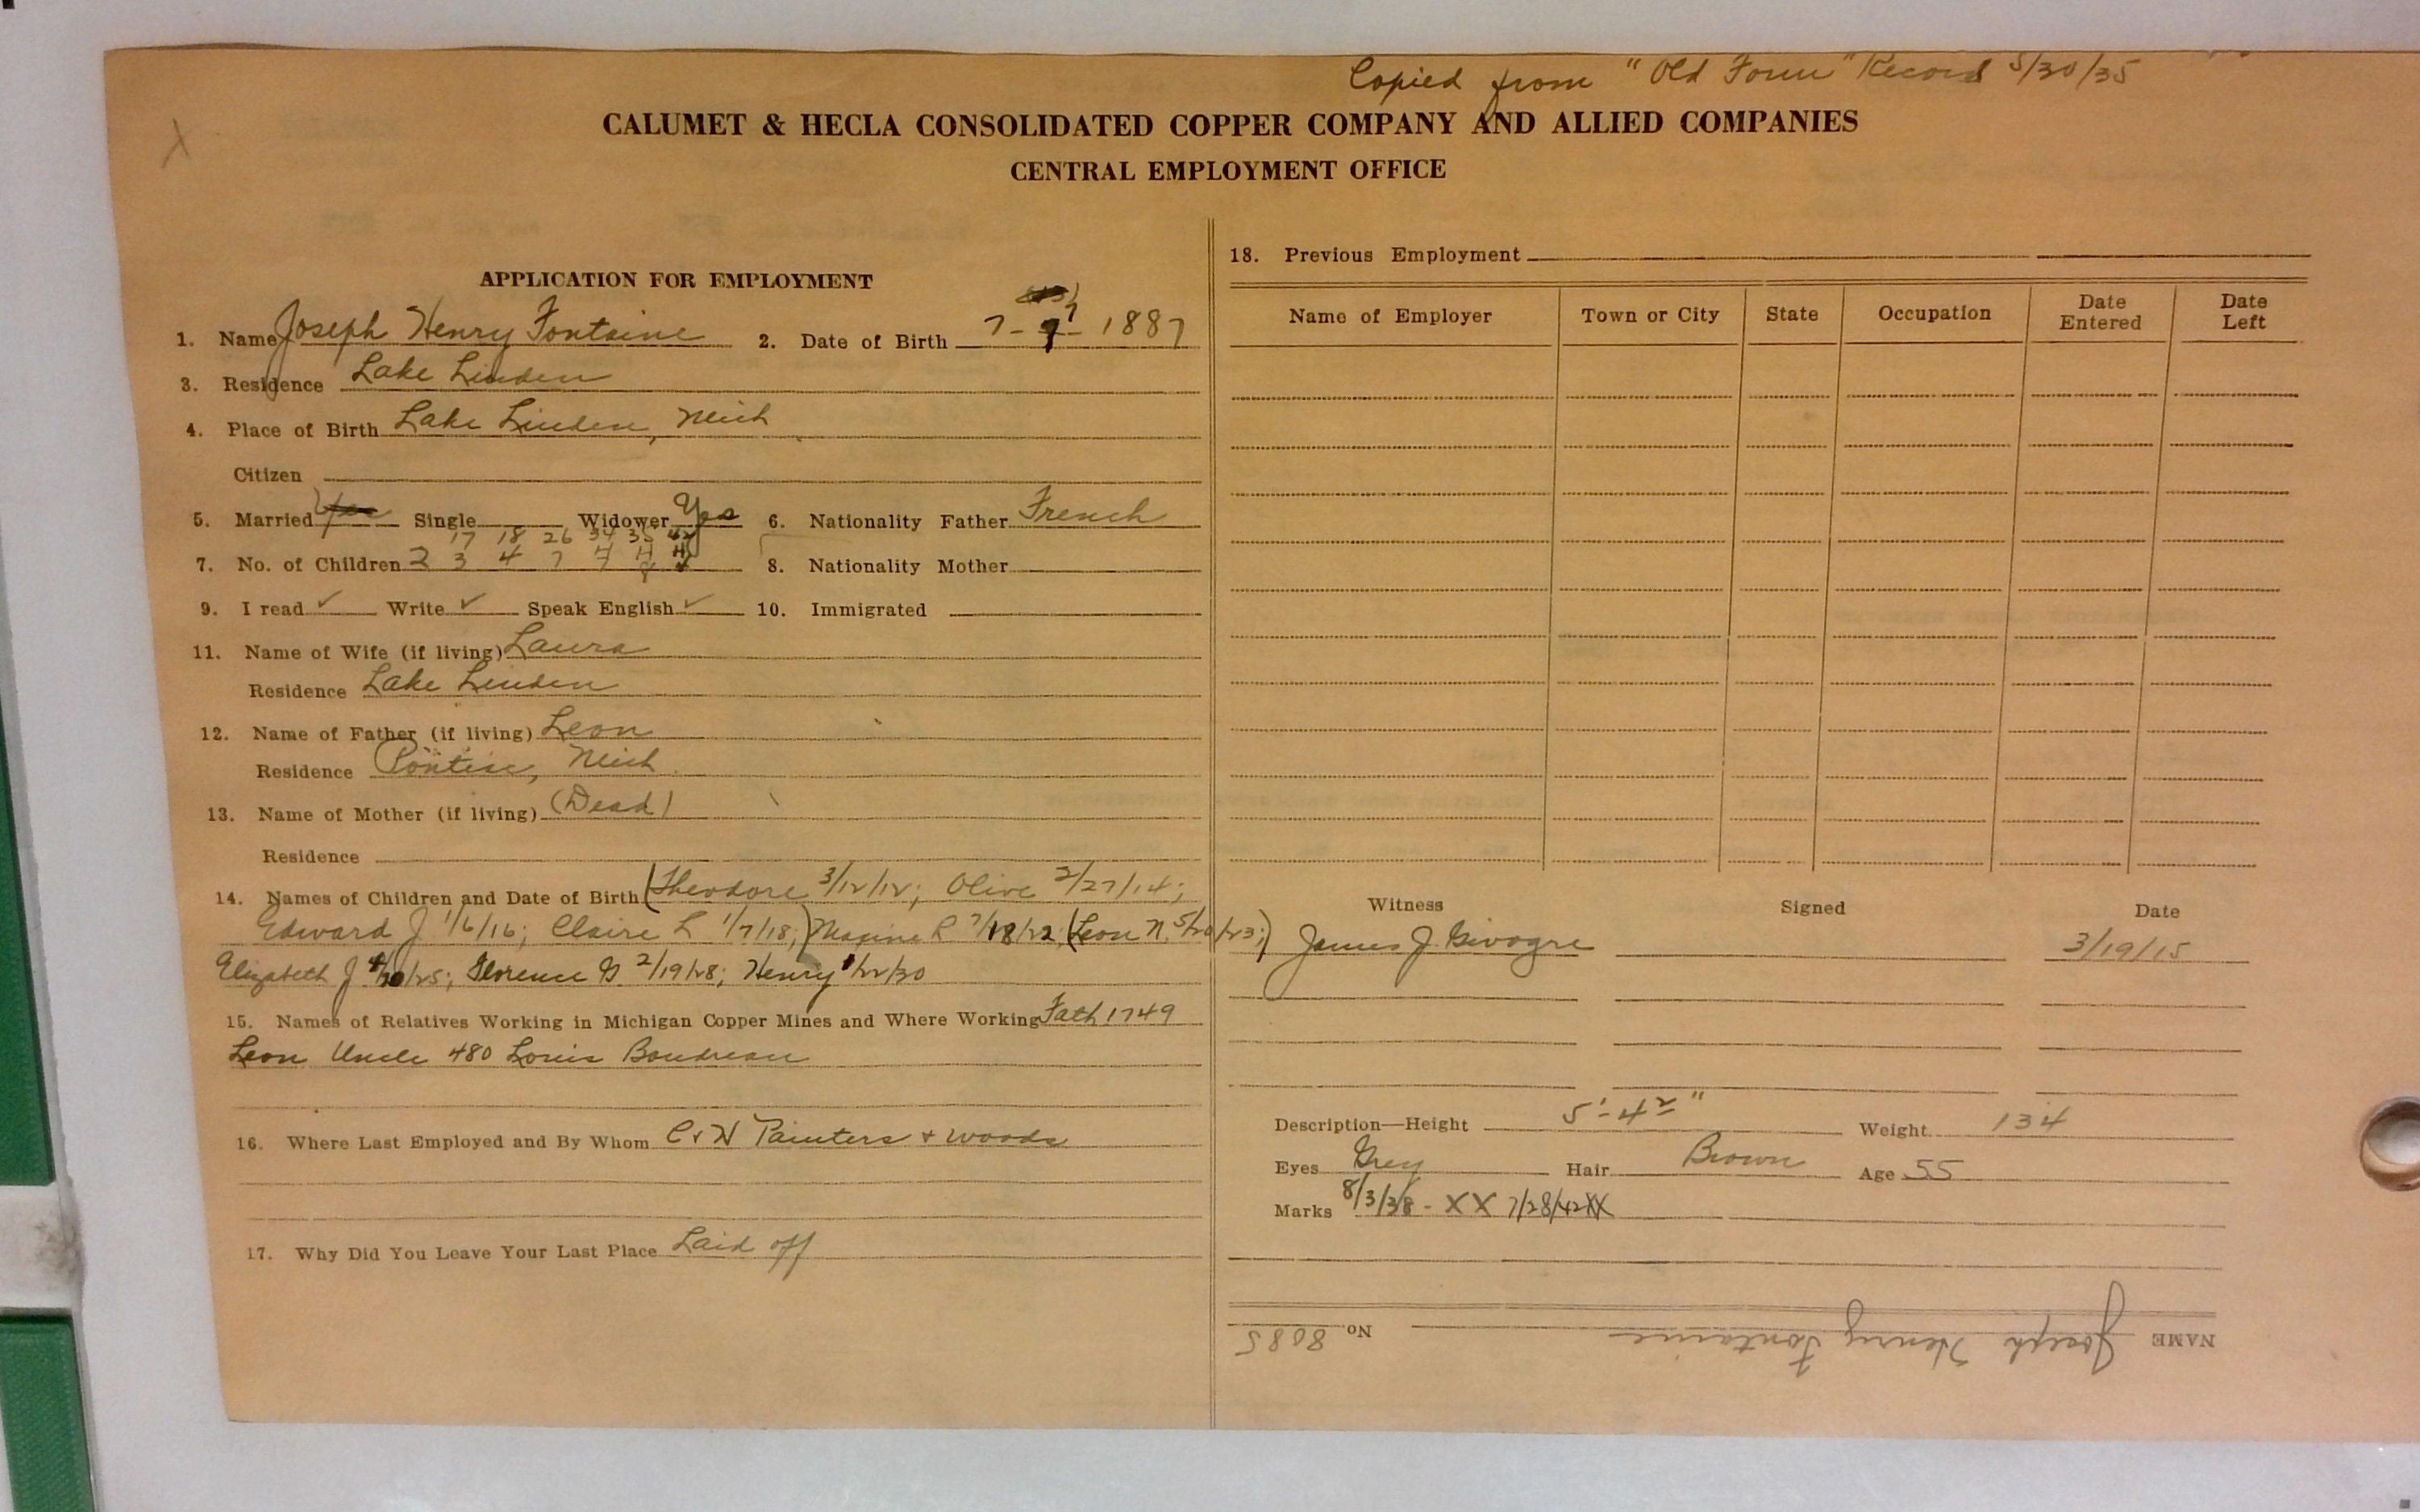 Copied from "Old Form" Record 5/30/35
CALUMET & HECLA CONSOLIDATED COPPER COMPANY AND ALLIED COMPANIES
CENTRAL EMPLOYMENT OFFICE
APPLICATION FOR EMPLOYMENT
1. Name Joseph Henry Fontaine 2. Date of Birth 7-7-1887
3. Residence Lake Linden
4. Place of Birth Lake Linden, Mich
Citizen
5. Married Yes Single Widower Yes 6. Nationality Father French
17 18 26 34 35 42
7. No. of Children 2 3 4 7 7 4 4 8. Nationality Mother
8
9. I read ✓ Write ✓ Speak English ✓ 10. Immigrated
11. Name of Wife (if living) Laura
Residence Lake Linden
12. Name of Father (if living) Leon
Residence Pontiac, Mich
13. Name of Mother (if living) (Dead)
Residence
14. Names of Children and Date of Birth (Theodore 3/12/12; Olive 2/27/14;
Edward J 1/6/16; Claire L 1/7/18;) Maxine R 7/18/22; (Leon N. 5/20/23;)
Elizabeth J 4/30/25; Florence G. 2/19/28; Henry 1/22/30
15. Names of Relatives Working in Michigan Copper Mines and Where Working Fath 1749
Leon Uncle 480 Louis Boudreau
16. Where Last Employed and By Whom C & H Painters + Woods
17. Why Did You Leave Your Last Place Laid off
18. Previous Employment
Name of Employer Town or City State Occupation Date Entered Date Left
Witness Signed Date
James J. 3/19/15
Description—Height 5'-4 2" Weight 134
Eyes Grey Hair Brown Age 55
Marks 8/3/38 - XX 7/28/42 XX
NAME Joseph Henry Fontaine No. 8085